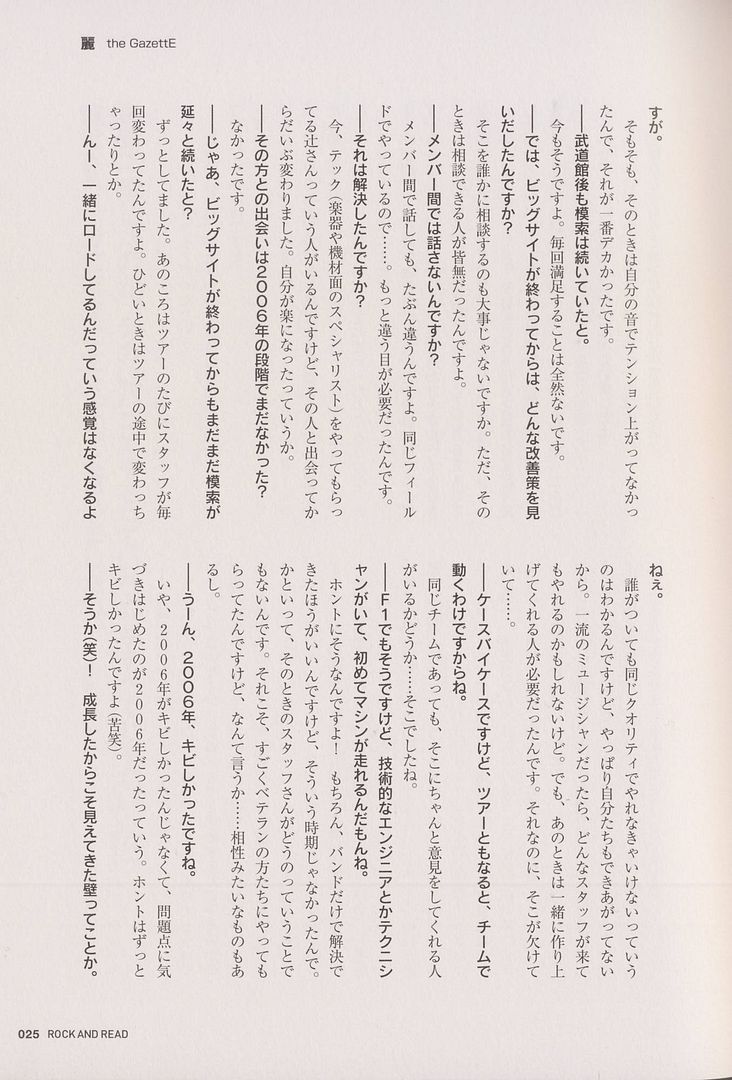 麗 the GazettE
すが。
　そもそも、そのときは自分の音でテンション上がってなかっ
たんで、それが一番デカかったです。
――武道館後も模索は続いていたと。
　今もそうですよ。毎回満足することは全然ないです。
――では、ビッグサイトが終わってからは、どんな改善策を見
いだしたんですか？
　そこを誰かに相談するのも大事じゃないですか。ただ、その
ときは相談できる人が皆無だったんですよ。
――メンバー間では話さないんですか？
　メンバー間で話しても、たぶん違うんですよ。同じフィール
ドでやっているので……。もっと違う目が必要だったんです。
――それは解決したんですか？
　今、テック（楽器や機材面のスペシャリスト）をやってもらっ
てる辻さんっていう人がいるんですけど、その人と出会ってか
らだいぶ変わりました。自分が楽になったっていうか。
――その方との出会いは２００６年の段階でまだなかった？
　なかったです。
――じゃあ、ビッグサイトが終わってからもまだまだ模索が
延々と続いたと？
　ずっとしてました。あのころはツアーのたびにスタッフが毎
回変わってたんですよ。ひどいときはツアーの途中で変わっち
ゃったりとか。
――んー、一緒にロードしてるんだっていう感覚はなくなるよ
ねぇ。
　誰がついても同じクオリティでやれなきゃいけないっていう
のはわかるんですけど、やっぱり自分たちもできあがってない
から。一流のミュージシャンだったら、どんなスタッフが来て
もやれるのかもしれないけど。でも、あのときは一緒に作り上
げてくれる人が必要だったんです。それなのに、そこが欠けて
いて……。
――ケースバイケースですけど、ツアーともなると、チームで
動くわけですからね。
　同じチームであっても、そこにちゃんと意見をしてくれる人
がいるかどうか……そこでしたね。
――Ｆ１でもそうですけど、技術的なエンジニアとかテクニシ
ャンがいて、初めてマシンが走れるんだもんね。
　ホントにそうなんですよ！　もちろん、バンドだけで解決で
きたほうがいいんですけど、そういう時期じゃなかったんで。
かといって、そのときのスタッフさんがどうのっていうことで
もないんです。それこそ、すごくベテランの方たちにやっても
らってたんですけど、なんて言うか……相性みたいなものもあ
るし。
――うーん、２００６年、キビしかったですね。
　いや、２００６年がキビしかったんじゃなくて、問題点に気
づきはじめたのが２００６年だったっていう。ホントはずっと
キビしかったんですよ（苦笑）。
――そうか（笑）！　成長したからこそ見えてきた壁ってことか。
025 ROCK AND READ